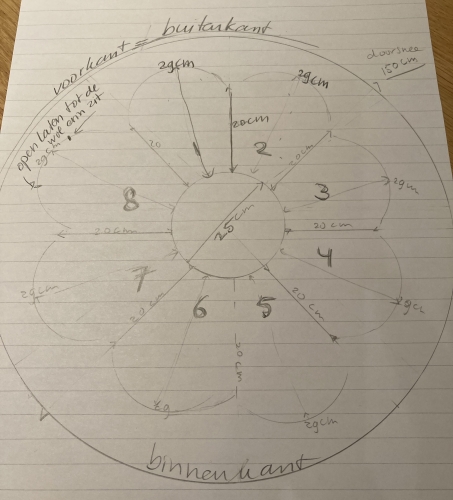 voorkant = buitenkant
doorsnee
150cm
open laten tot de
wol erin zit
29cm
29cm
29cm
20cm
20
1
2
20cm
8
3
29cm
20cm
25cm
20cm
4
7
29cm
29cm
20cm
6
5
20cm
20cm
29
29cm
binnenkant